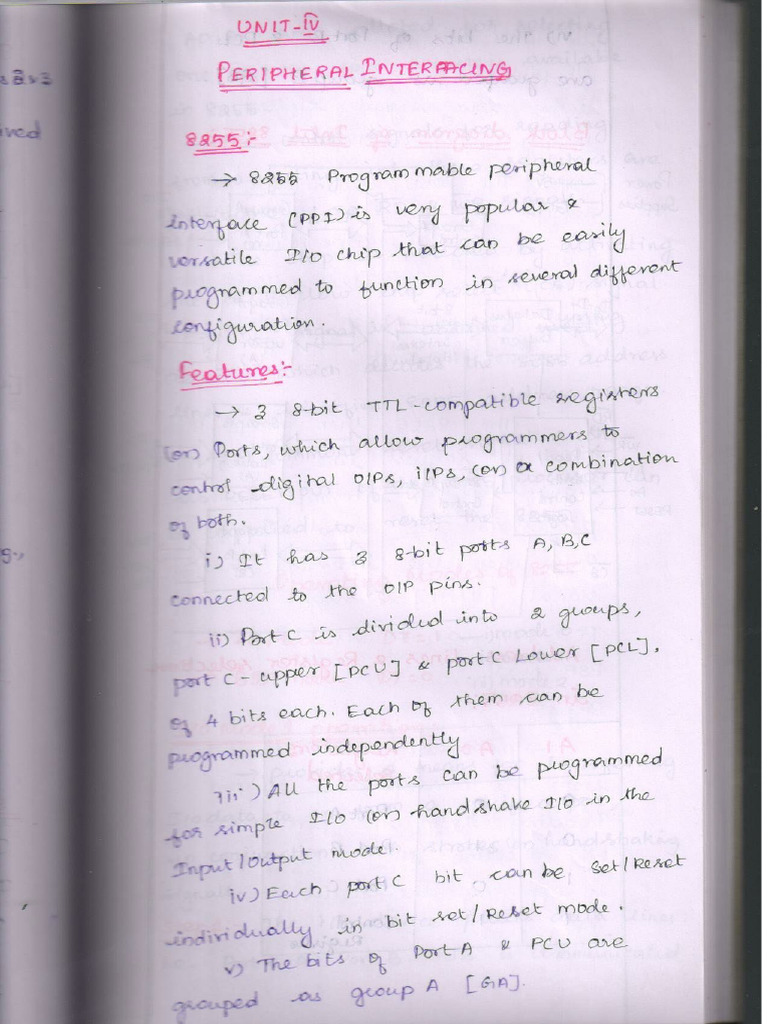 UNIT-IV
PERIPHERAL INTERFACING
8255:-
→ 8255 Programmable peripheral
interface (PPI) is very popular &
versatile I/O chip that can be easily
programmed to function in several different
configuration.
Features:-
→ 3 8-bit TTL-compatible registers
(or) Ports, which allow programmers to
control digital O/Ps, i/Ps, (or) a combination
of both.
i) It has 3 8-bit ports A, B, C
connected to the O/P pins.
ii) Port C is divided into 2 groups,
port C-upper [PCU] & port C Lower [PCL],
of 4 bits each. Each of them can be
programmed independently
iii) All the ports can be programmed
for simple I/O (or) handshake I/O in the
Input/Output mode.
iv) Each port C bit can be Set/Reset
individually in bit set/Reset mode.
v) The bits of Port A & PCU are
grouped as group A [GA].